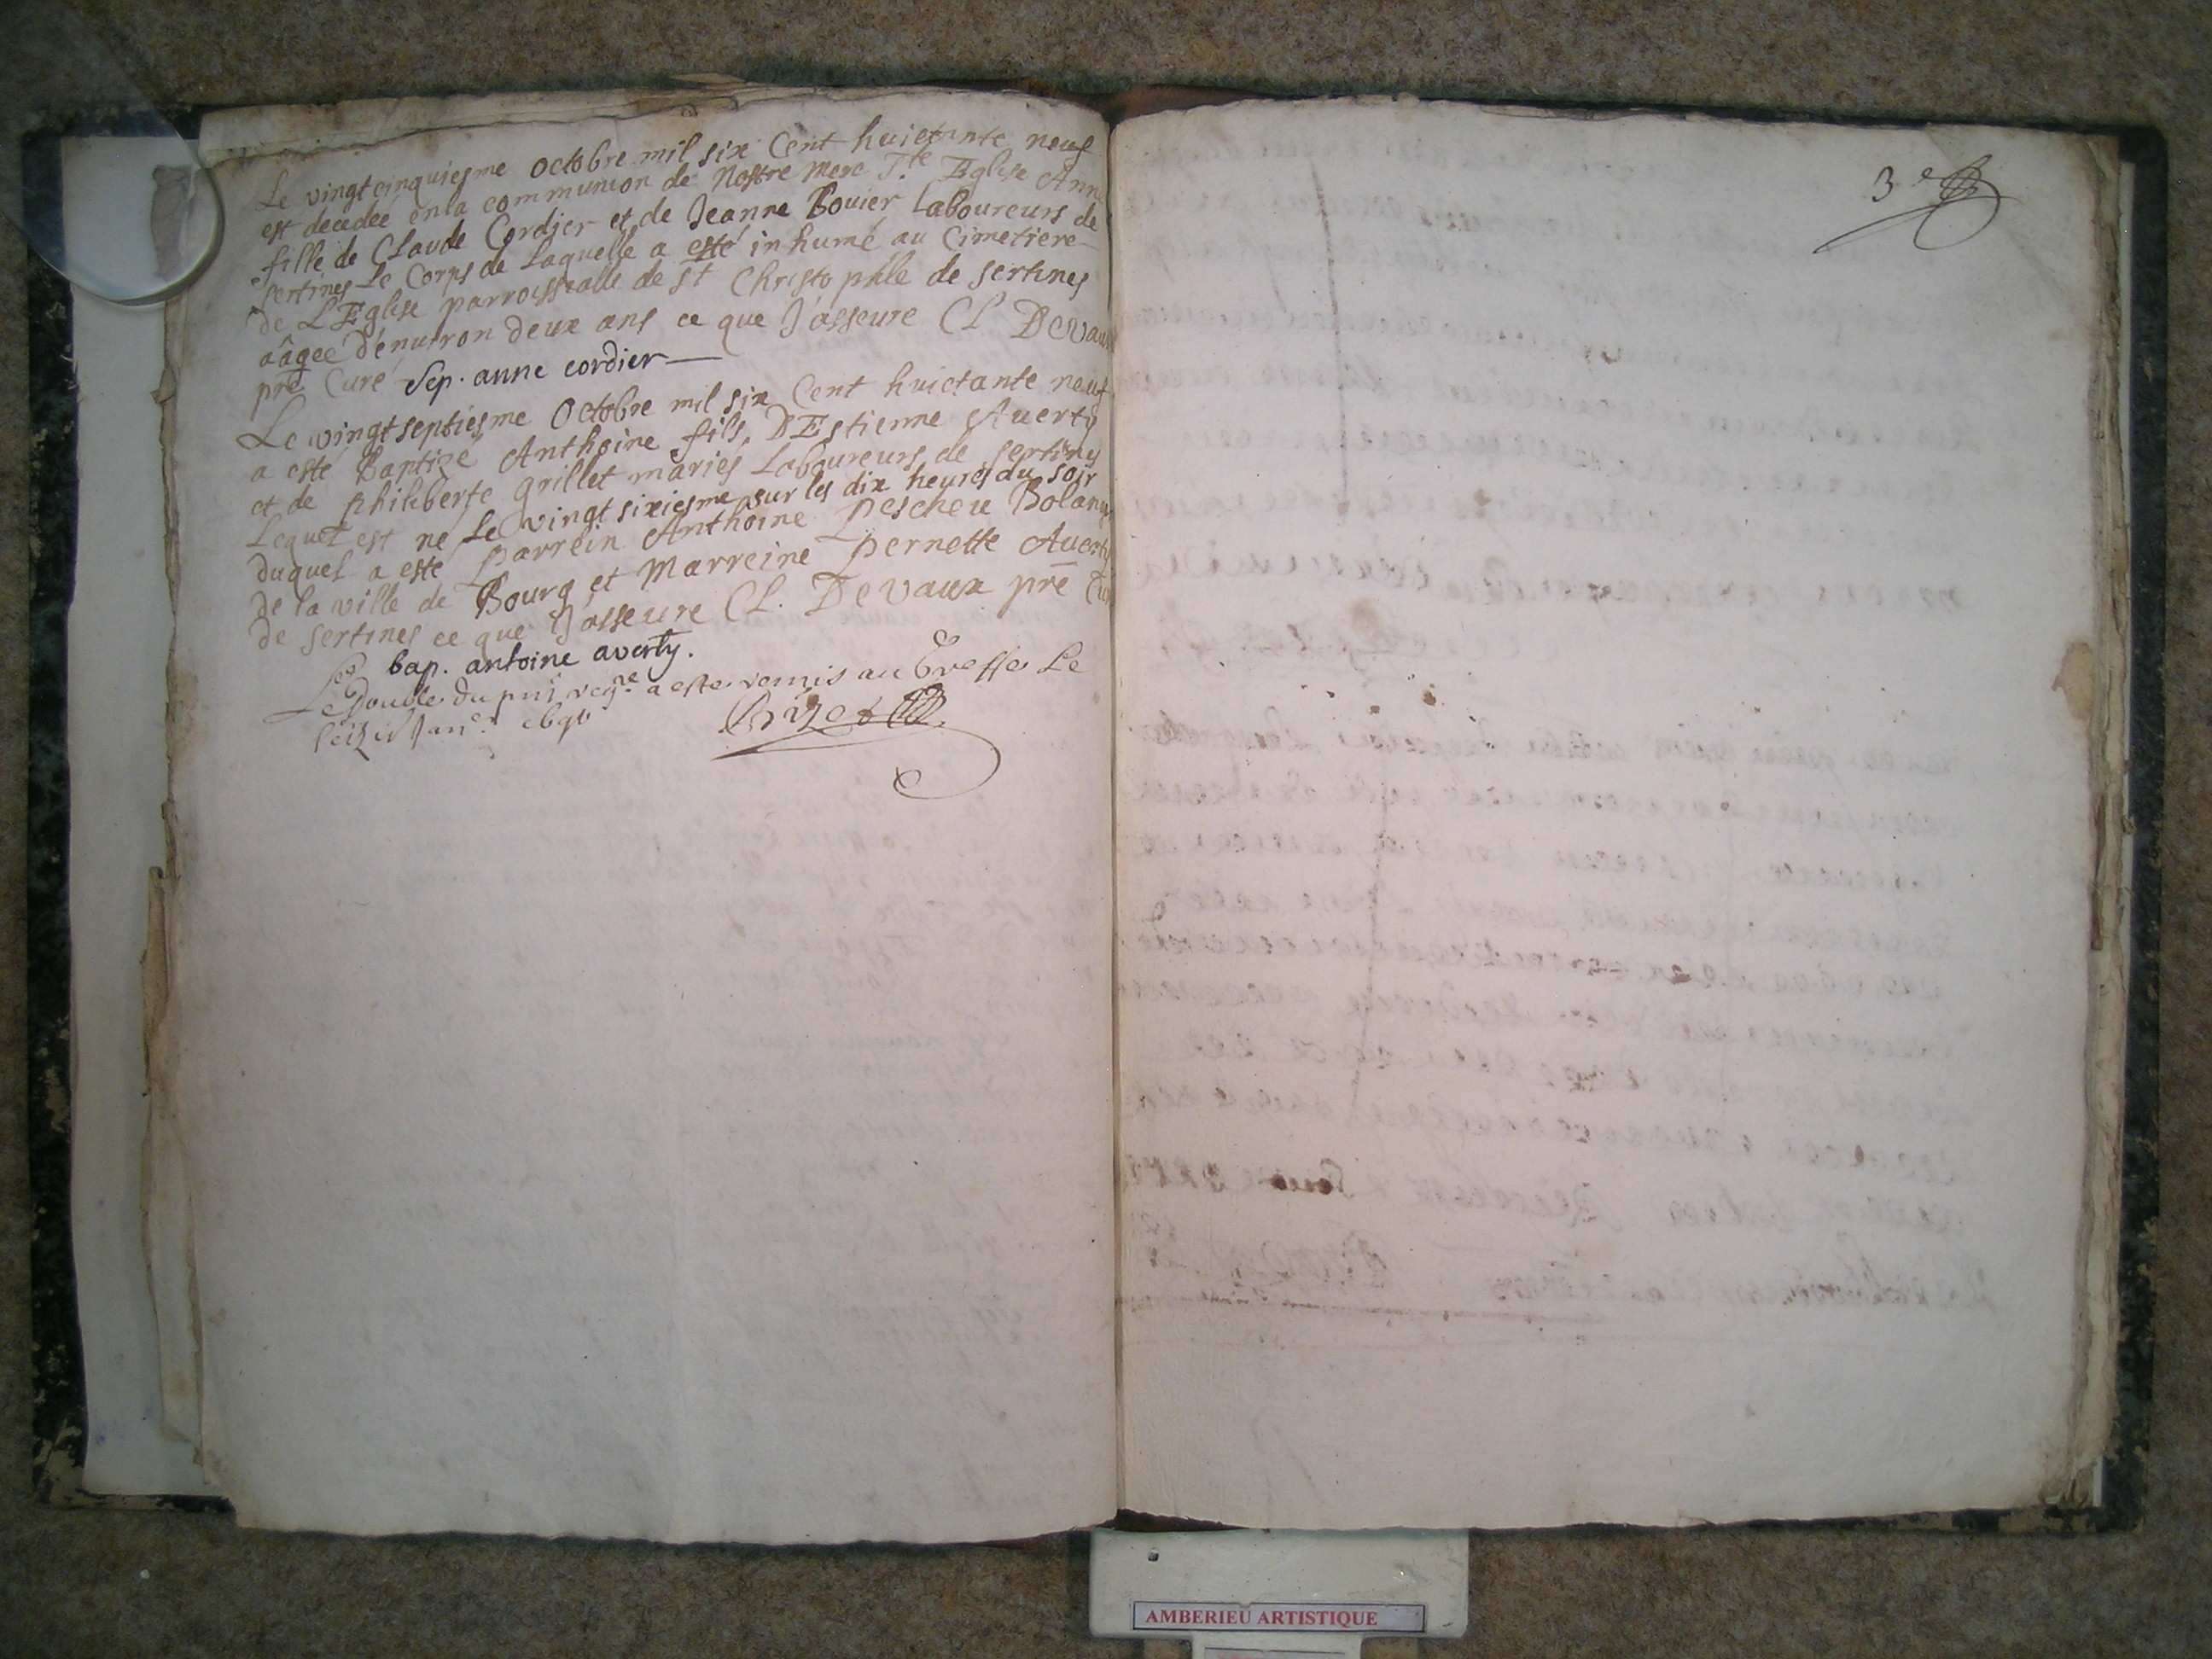 Le vingtcinquiesme octobre mil six Cent huictante neuf
est decedée en la communion de Nostre Mere Ste Eglise Anne
fille de CLaude Cordier et de Jeanne Bouier Laboureurs de
sertines Le Corps de Laquelle a esté inhumé au Cimetiere
de L'Eglise parroissialle de st Christophle de sertines
aâgee d'enuiron deux ans ce que J'asseure CL Devaux
pre Curé Sep. anne cordier
Le vingtseptiesme Octobre mil six Cent huictante neuf
a esté Baptizé Anthoine fils D'Estienne Auerty
et de philiberte grillet mariés Laboureurs de sertines
Lequel est né Le vingt sixiesme sur les dix heures du soir
duquel a esté parrein Anthoine Pescheu
de la ville de Bourg et Marreine pernette Auerty
de sertines ce que J'asseure CL. Devaux pre Curé
bap. antoine averty.
Le Double du pnt regre a este remis au Greffe Le
Janer
3e
AMBERIEU ARTISTIQUE